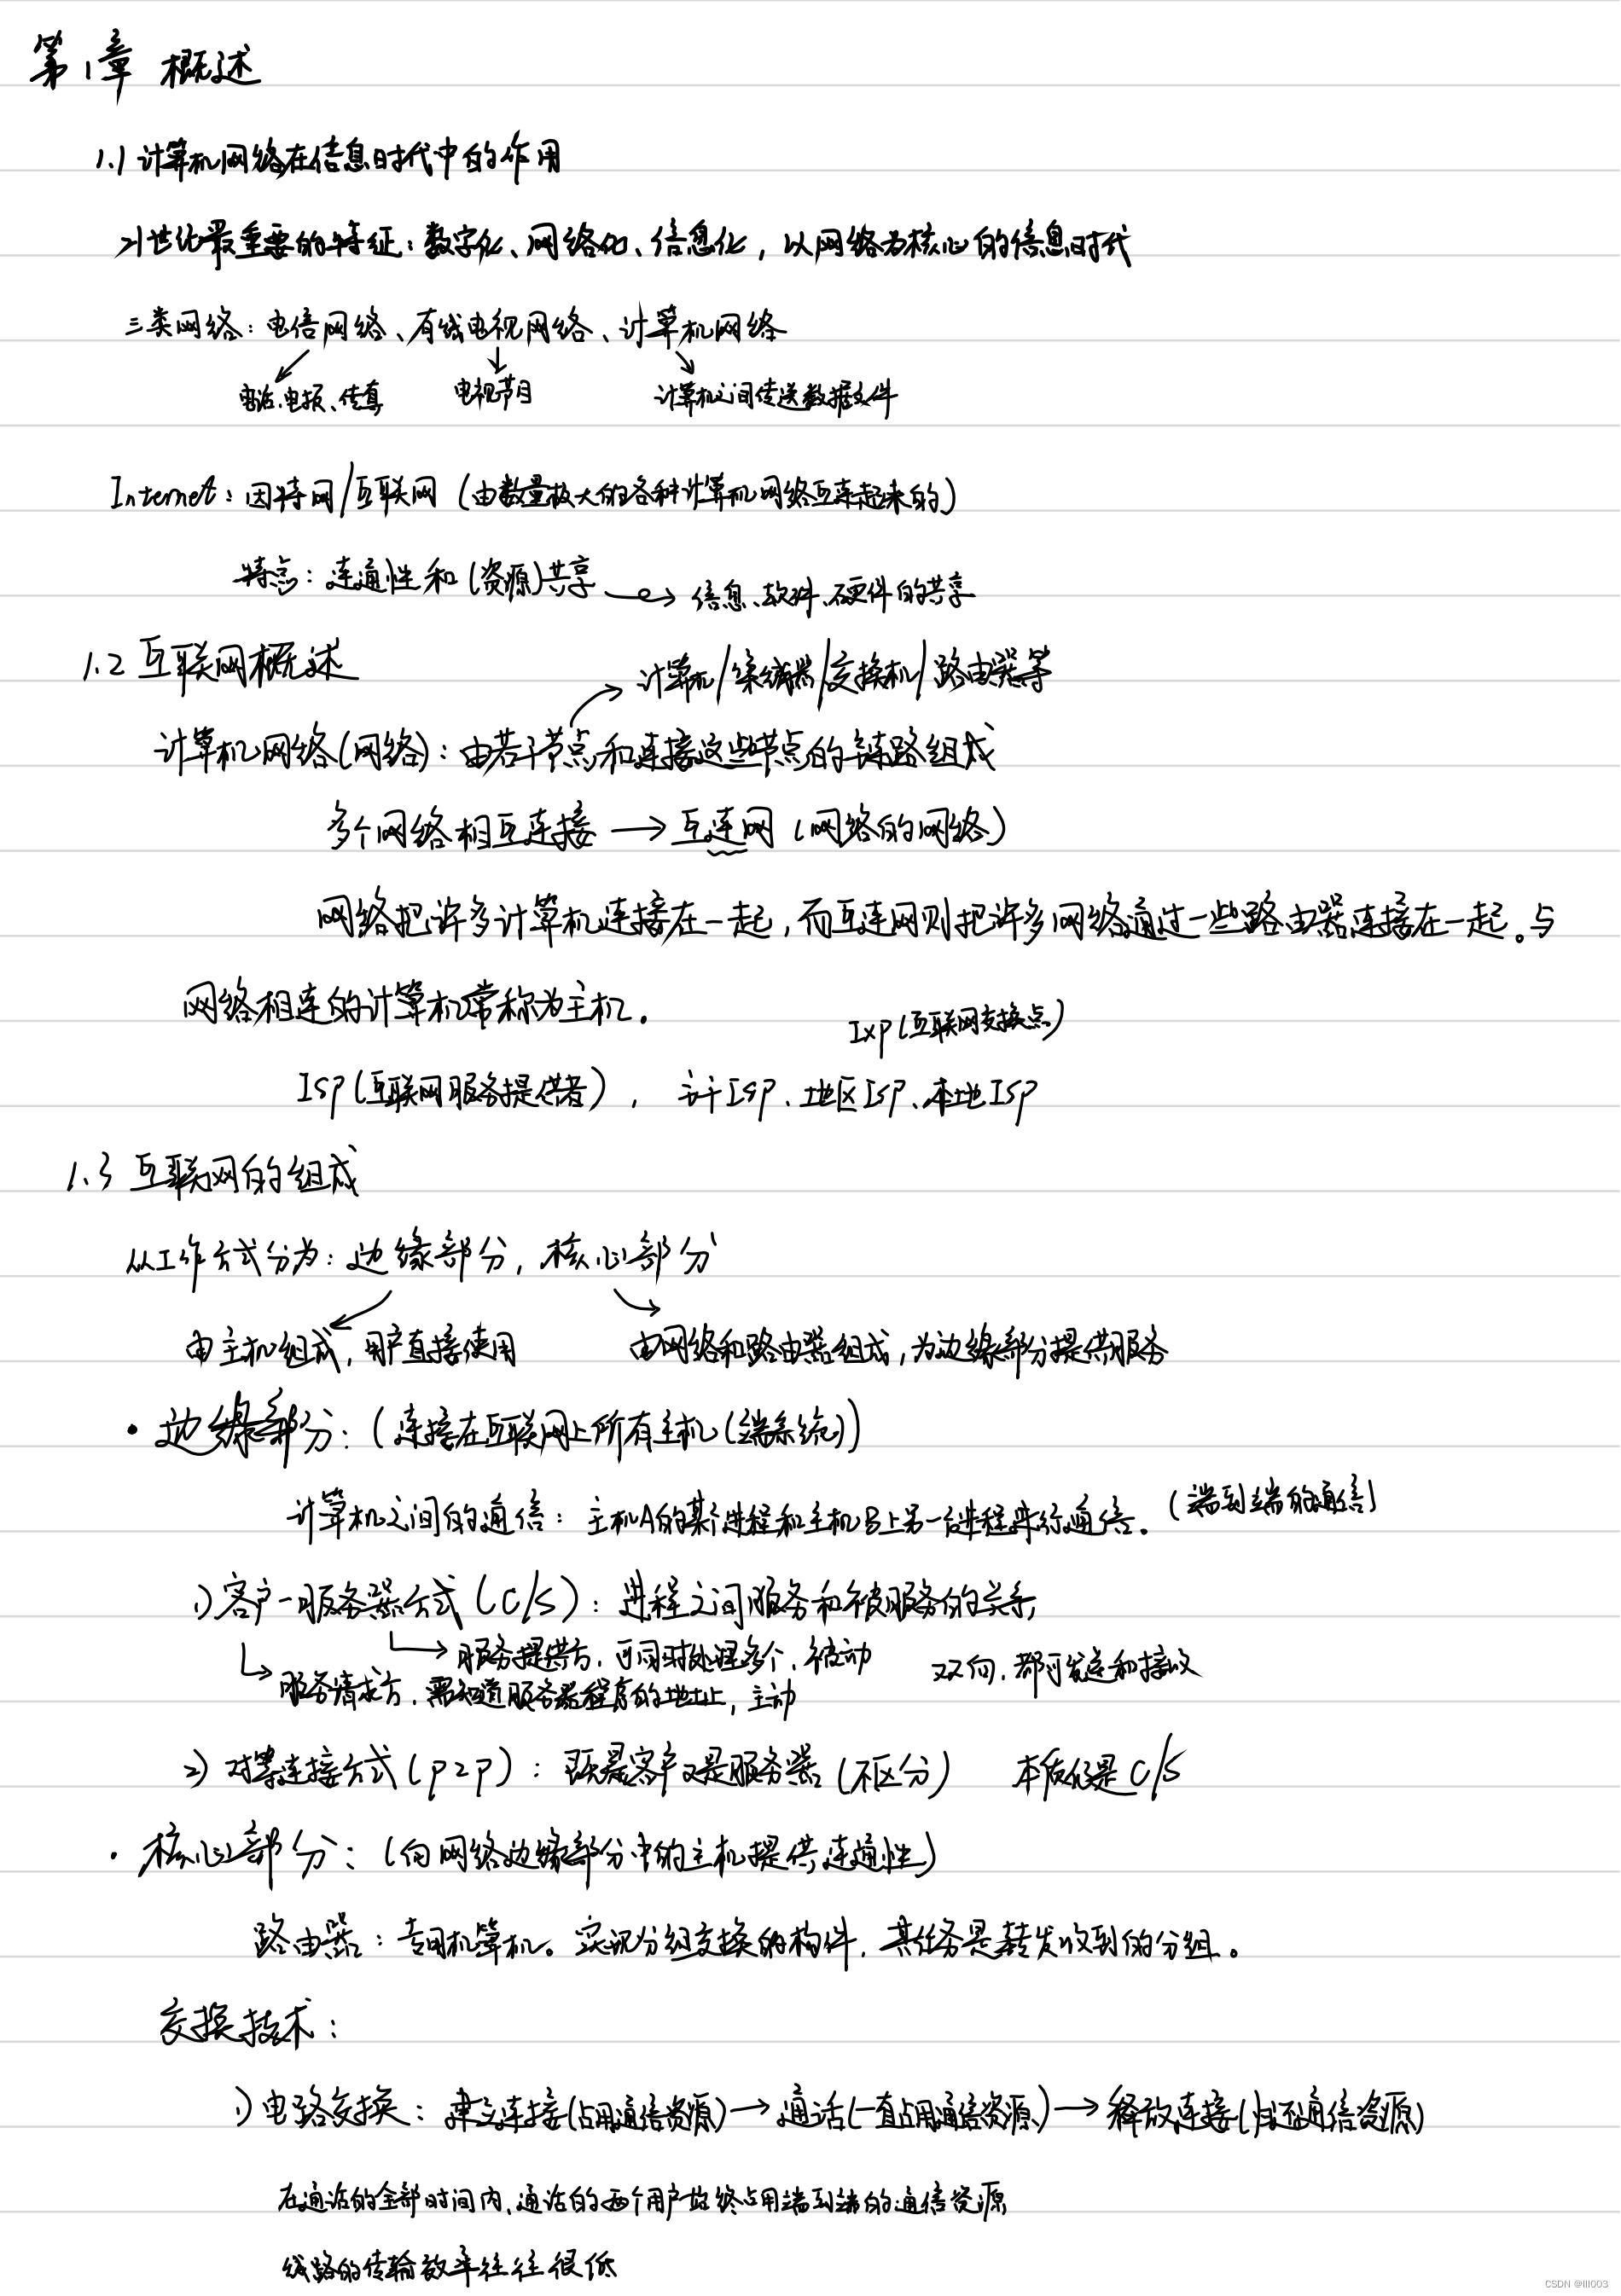 第1章 概述
1.1 计算机网络在信息时代中的作用
21世纪最重要的特征：数字化、网络化、信息化，以网络为核心的信息时代
三类网络：电信网络、有线电视网络、计算机网络
电话、电报、传真 电视节目 计算机之间传送数据文件
Internet：因特网/互联网（由数量极大的各种计算机网络互连起来的）
特点：连通性和(资源)共享 → 信息、软件、硬件的共享
1.2 互联网概述
计算机/集线器/交换机/路由器等
计算机网络(网络)：由若干节点和连接这些节点的链路组成
多个网络相互连接 → 互连网（网络的网络）
网络把许多计算机连接在一起，而互连网则把许多网络通过一些路由器连接在一起。与
网络相连的计算机常称为主机.
IXP(互联网交换点)
ISP(互联网服务提供者)， 主干ISP、地区ISP、本地ISP
1.3 互联网的组成
从工作方式分为：边缘部分，核心部分
由主机组成，用户直接使用 由网络和路由器组成，为边缘部分提供服务
· 边缘部分：(连接在互联网上所有主机(端系统))
计算机之间的通信：主机A的某个进程和主机B上另一个进程进行通信。(端到端的通信)
1) 客户-服务器方式(C/S)：进程之间服务和被服务的关系
服务提供方，可同时处理多个，被动 双向，都可发送和接收
服务请求方，需知道服务器程序的地址，主动
2) 对等连接方式(P2P)：既是客户又是服务器(不区分) 本质仍是C/S
· 核心部分：(向网络边缘部分中的主机提供连通性)
路由器：专用计算机。实现分组交换的构件，其任务是转发收到的分组。
交换技术：
1) 电路交换：建立连接(占用通信资源) → 通话(一直占用通信资源) → 释放连接(归还通信资源)
在通话的全部时间内，通话的两个用户始终占用端到端的通信资源
线路的传输效率往往很低
CSDN @lll003